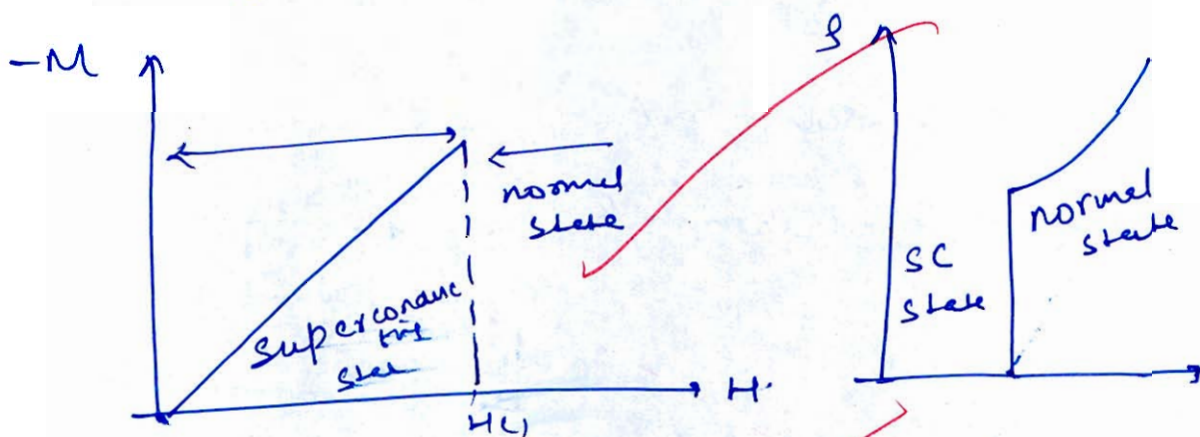 -M
normal
state
superconduc
ting
state
H.
ρ
SC
state
normal
state